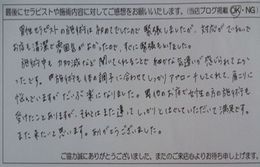 最後にセラピストや施術内容に対してご感想をお願いいたします。(当店ブログ掲載 OK・NG)
男性セラピストの施術は初めてでしたので緊張しましたが、対応がていねいで
お店も清潔で雰囲気がよかったので、すぐに緊張もほぐれました。
施術中も力加減など聞いてくれることで細やかな気遣いが感じられてよか
ったです。施術も体の調子に合わせてしっかりアプローチしてくれて、肩こりに
悩んでいますがだいぶ楽になりました。男性のお店で女性の方の施術も
受けたことありますが、それとはまた違ってしっかりとほぐしていただいて満足です。
また来たいと思います。ありがとうございました。
ご協力誠にありがとうございました。またのご来店心よりお待ち申し上げます。